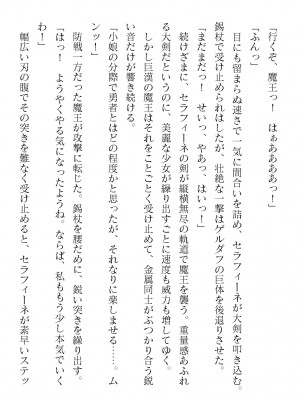 「行くぞ、魔王っ！　はぁああああっ！
「ふんっ」
　目にも留まらぬ速さで一気に間合いを詰め、セラフィーネが大剣を叩き込む。
　錫杖で受け止められはしたが、壮絶な一撃はゲルダフの巨体を後退りさせた。
「まだまだっ！　せいっ、やあっ、はいっ！」
　続けざまに、セラフィーネの剣が縦横無尽の軌道で魔王を襲う。重量感あふれ
る大剣だというのに、美麗な少女が繰り出すごとに速度も威力も増してゆく。
　しかし巨漢の魔王はそれをことごとく受け止めて、金属同士がぶつかり合う鋭
い音だけが響き続ける。
「小娘の分際で勇者とはどの程度かと思ったが、それなりに楽しませる……。ム
ンッ！」
　防戦一方だった魔王が攻撃に転じた。錫杖を腰だめに、鋭い突きを繰り出す。
「はっ！　ようやくやる気になったようね。ならば、私ももう少し本気でいく
わ！」
　幅広い刃の腹でその突きを難なく受け止めると、セラフィーネが素早いステッ